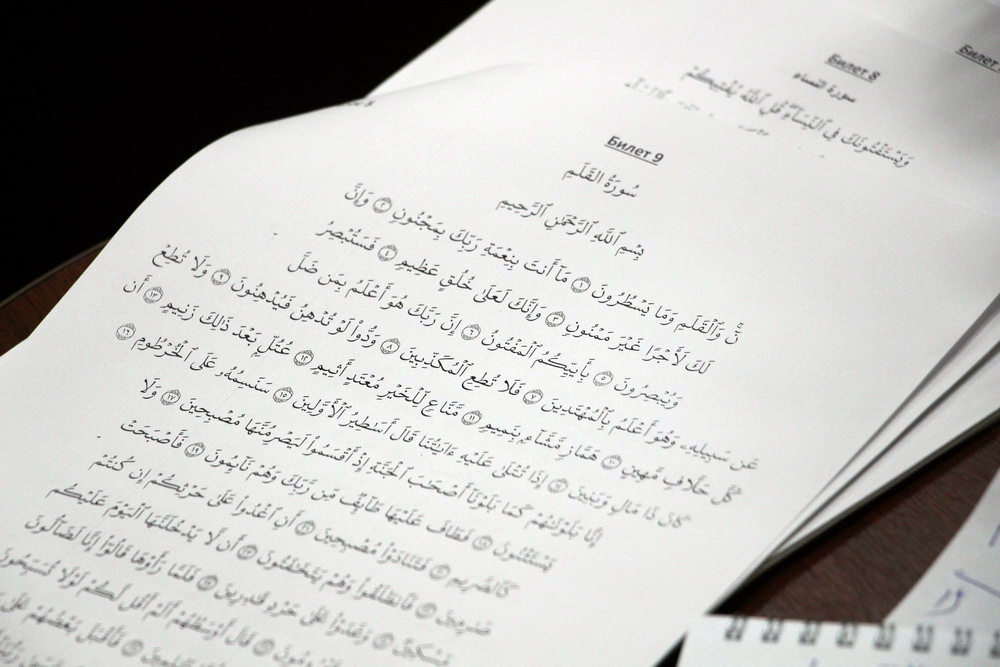 Билет 8
سورة النساء
وَيَسْتَفْتُونَكَ فِي ٱلنِّسَآءِ ۖ قُلِ ٱللَّهُ يُفْتِيكُمْ
Билет 9
سُورَةُ القَلَمِ
بِسْمِ ٱللَّهِ ٱلرَّحْمَٰنِ ٱلرَّحِيمِ
نٓ ۚ وَٱلْقَلَمِ وَمَا يَسْطُرُونَ ١ مَآ أَنتَ بِنِعْمَةِ رَبِّكَ بِمَجْنُونٍ ٢ وَإِنَّ
لَكَ لَأَجْرًا غَيْرَ مَمْنُونٍ ٣ وَإِنَّكَ لَعَلَىٰ خُلُقٍ عَظِيمٍ ٤ فَسَتُبْصِرُ
وَيُبْصِرُونَ ٥ بِأَييِّكُمُ ٱلْمَفْتُونُ ٦ إِنَّ رَبَّكَ هُوَ أَعْلَمُ بِمَن ضَلَّ
عَن سَبِيلِهِۦ وَهُوَ أَعْلَمُ بِٱلْمُهْتَدِينَ ٧ فَلَا تُطِعِ ٱلْمُكَذِّبِينَ ٨ وَدُّوا۟ لَوْ تُدْهِنُ فَيُدْهِنُونَ ٩ وَلَا تُطِعْ
كُلَّ حَلَّافٍ مَّهِينٍ ١٠ هَمَّازٍ مَّشَّآءٍۭ بِنَمِيمٍ ١١ مَّنَّاعٍ لِّلْخَيْرِ مُعْتَدٍ أَثِيمٍ ١٢ عُتُلٍّۭ بَعْدَ ذَٰلِكَ زَنِيمٍ ١٣ أَن
كَانَ ذَا مَالٍ وَبَنِينَ ١٤ إِذَا تُتْلَىٰ عَلَيْهِ ءَايَٰتُنَا قَالَ أَسَٰطِيرُ ٱلْأَوَّلِينَ ١٥ سَنَسِمُهُۥ عَلَى ٱلْخُرْطُومِ ١٦
إِنَّا بَلَوْنَٰهُمْ كَمَا بَلَوْنَآ أَصْحَٰبَ ٱلْجَنَّةِ إِذْ أَقْسَمُوا۟ لَيَصْرِمُنَّهَا مُصْبِحِينَ ١٧ وَلَا
يَسْتَثْنُونَ ١٨ فَطَافَ عَلَيْهَا طَآئِفٌ مِّن رَّبِّكَ وَهُمْ نَآئِمُونَ ١٩ فَأَصْبَحَتْ
كَٱلصَّرِيمِ ٢٠ فَتَنَادَوْا۟ مُصْبِحِينَ ٢١ أَنِ ٱغْدُوا۟ عَلَىٰ حَرْثِكُمْ إِن كُنتُمْ
صَٰرِمِينَ ٢٢ فَٱنطَلَقُوا۟ وَهُمْ يَتَخَٰفَتُونَ ٢٣ أَن لَّا يَدْخُلَنَّهَا ٱلْيَوْمَ عَلَيْكُم
مِّسْكِينٌ ٢٤ وَغَدَوْا۟ عَلَىٰ حَرْدٍ قَٰدِرِينَ ٢٥ فَلَمَّا رَأَوْهَا قَالُوٓا۟ إِنَّا لَضَآلُّونَ
قَالَ أَوْسَطُهُمْ أَلَمْ أَقُل لَّكُمْ لَوْلَا تُسَبِّحُونَ